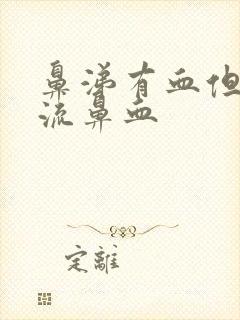 鼻涕有血但
流鼻血
定離